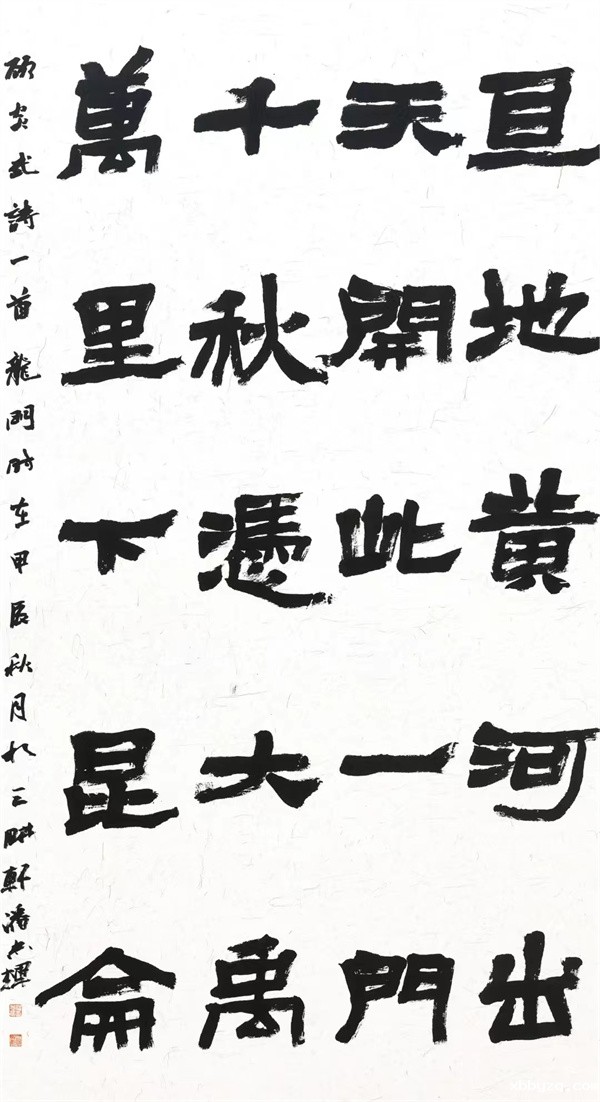 亘地黄河出
天開此一門
千秋憑大禹
萬里下昆侖
顧炎武詩一首龍門時在甲辰秋月於三軒潘